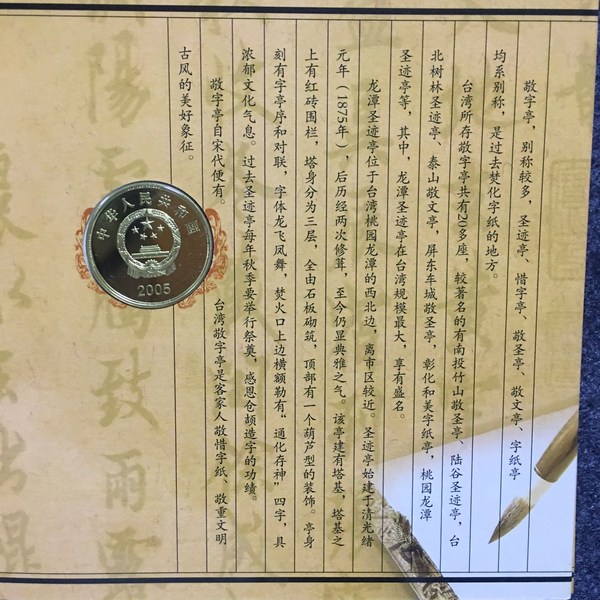 敬字亭，别称较多，圣迹亭、惜字亭、敬圣亭、敬文亭、字纸亭
均系别称，是过去焚化字纸的地方。
台湾所存敬字亭共有20多座，较著名的有南投竹山敬圣亭、陆谷圣迹亭，台
北树林圣迹亭、泰山敬文亭，屏东车城敬圣亭，彰化和美字纸亭，桃园龙潭
圣迹亭等，其中，龙潭圣迹亭在台湾规模最大，享有盛名。
龙潭圣迹亭位于台湾桃园龙潭的西北边，离市区较近。圣迹亭始建于清光绪
元年（1875年），后历经两次修葺，至今仍显典雅之气。该亭建有塔基，塔基之
上有红砖围栏，塔身分为三层，全由石板砌筑，顶部有一个葫芦型的装饰。亭身
刻有字亭序和对联，字体龙飞凤舞，焚火口上边横额勒有“通化存神”四字，具
浓郁文化气息。过去圣迹亭每年秋季要举行祭奠，感恩仓颉造字的功绩。
敬字亭自宋代便有。 台湾敬字亭是客家人敬惜字纸、敬重文明
古风的美好象征。
中华人民共和国
2005